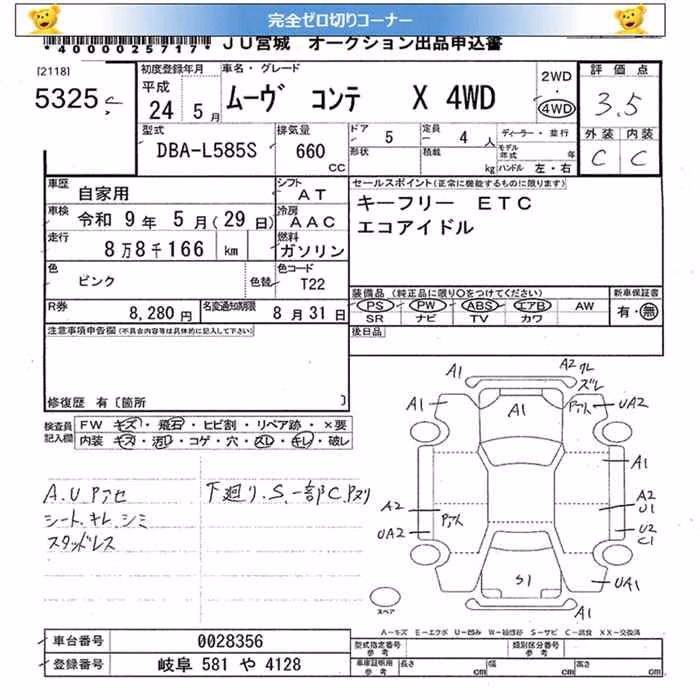 完全ゼロ切りコーナー
*4000025717* JU宮城 オークション出品申込書
[2118]
5325 c
初度登録年月
平成
24 5 月
車名・グレード
ムーヴ コンテ X 4WD
2WD
・
4WD
評価点
3.5
外装 内装
C C
型式
DBA-L585S
排気量
660
CC
ドア 5
定員 4 人
形状
積載 kg
ディーラー・並行
モデル年式 年
ハンドル 左・右
車歴 自家用
シフト AT
車検 令和 9 年 5 月(29 日)
冷房 AAC
走行 8万8千166 km
燃料 ガソリン
色 ピンク 色替
色コード T22
R券 8,280 円
名変通知期限 8月31日
セールスポイント(正常に機能するものに限ります)
キーフリー ETC
エコアイドル
装備品(純正品に限り〇をつけてください)
新車保証書
PS PW ABS エアB AW
SR ナビ TV カワ
有・無
後日品
注意事項申告欄(不具合内容等は具体的に記入して下さい)
修復歴 有〔箇所 〕
検査員記入欄
FW キズ・飛石・ヒビ割・リペア跡・×要
内装 キズ・汚れ・コゲ・穴・スレ・キレ・破レ
A.U Pアセ
シート.キレ.シミ
スタッドレス
下廻り.S.一部C.Pヌリ
A1
A2 クレ
ズレ
A1
A1
Pアト
UA2
A1
A2
UA2
Pアト
A2
U1
U2
C1
S1
UA1
A1
スペア
A-キズ E-エクボ U-凹み W-補修跡 S-サビ C-腐食 XX-交換済
車台番号 0028356
登録番号 岐阜 581 や 4128
型式指定番号 参考
類別区分番号 参考
車庫証明用 参考
長さ cm 幅 cm 高さ cm